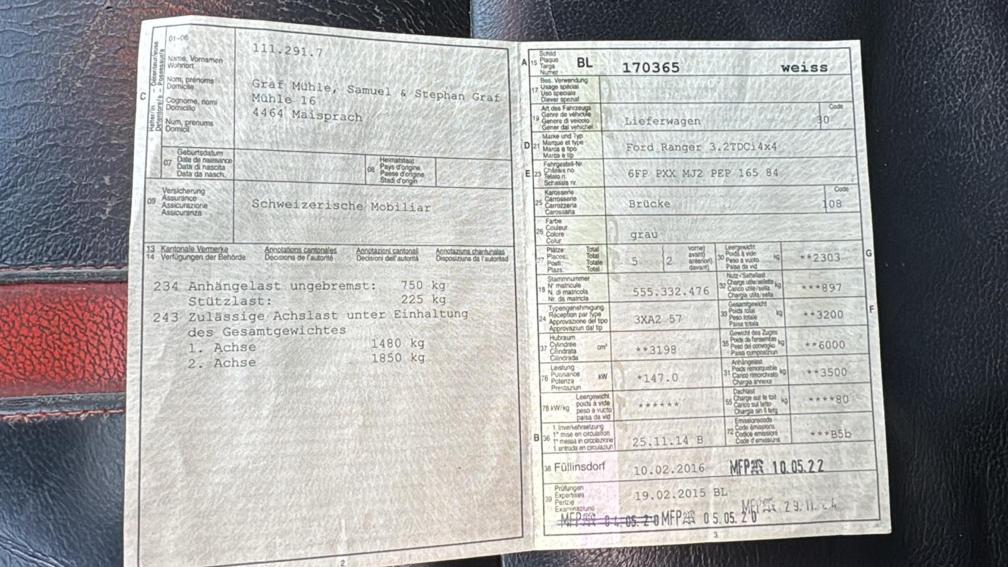 01-06
111.291.7
C
Name, Vornamen
Wohnort
Nom, prénoms
Domicile
Cognome, nomi
Domicilio
Num, prenums
Domicil
Graf Mühle, Samuel & Stephan Graf
Mühle 16
4464 Maisprach
07
Geburtsdatum
Date de naissance
Data di nascita
Data da nasch.
08
Heimatstaat
Pays d'origine
Paese d'origine
Stadi d'origin
09
Versicherung
Assurance
Assicurazione
Assicuranza
Schweizerische Mobiliar
13 Kantonale Vermerke Annotations cantonales Annotazioni cantonali Annotaziuns chantunalas
14 Verfügungen der Behörde Décisions de l'autorité Decisioni dell'autorità Disposiziuns da l'autoritad
234 Anhängelast ungebremst: 750 kg
Stützlast: 225 kg
243 Zulässige Achslast unter Einhaltung
des Gesamtgewichtes
1. Achse 1480 kg
2. Achse 1850 kg
2
A 15
Schild
Plaque
Targa
Numer
BL 170365 weiss
17
Bes. Verwendung
Usage spécial
Uso speciale
Diever spezial
19
Art des Fahrzeugs
Genre de véhicule
Genere di veicolo
Gener dal vehichel
Lieferwagen
Code
30
D 21
Marke und Typ
Marque et type
Marca e tipo
Marca e tip
Ford Ranger 3.2TDCi4x4
E 23
Fahrgestell-Nr.
Châssis no
Telaio n.
Schassis nr.
6FP PXX MJ2 PEP 165 84
25
Karosserie
Carrosserie
Carrozzeria
Carossaria
Brücke
Code
108
26
Farbe
Couleur
Colore
Colur
grau
27
Plätze: Total
Places: Total
Posti: Totale
Plazs: Total
5
vorne)
avant)
anteriori)
davant)
2
30
Leergewicht
Poids à vide
Peso a vuoto
Paisa da vid
kg
**2303
G
18
Stammnummer
N° matricule
N. di matricola
Nr. da matricla
555.332.476
32
Nutz-/Sattellast
Charge utile/sellette
Carico utile/sella
Chargia utila/sella
kg
***897
24
Typengenehmigung
Réception par type
Approvazione del tipo
Approvaziun dal tip
3XA2 57
33
Gesamtgewicht
Poids total
Peso totale
Paisa totala
kg
**3200
F
37
Hubraum
Cylindrée
Cilindrata
Cilindrada
cm³
**3198
35
Gewicht des Zuges
Poids de l'ensemble
Peso del convoglio
Paisa cumposiziun
kg
**6000
76
Leistung
Puissance
Potenza
Prestaziun
kW
*147.0
31
Anhängelast
Poids remorquable
Carico rimorchiato
Chargia annexa
kg
**3500
78 kW/kg
Leergewicht
poids à vide
peso a vuoto
paisa da vid
******
55
Dachlast
Charge sur le toit
Carico sul tetto
Chargia sin il tetg
kg
****80
B 36
1. Inverkehrsetzung
1re mise en circulation
1a messa in circolazione
1. entrada en circulaziun
25.11.14 B
72
Emissionscode
Code émissions
Codice emissioni
Code d'emissiuns
***B5b
38 Füllinsdorf 10.02.2016 MFP 10.05.22
39
Prüfungen
Expertises
Perizie
Examinaziuns
19.02.2015 BL
MFP 04.05.20 MFP 05.05.20
3